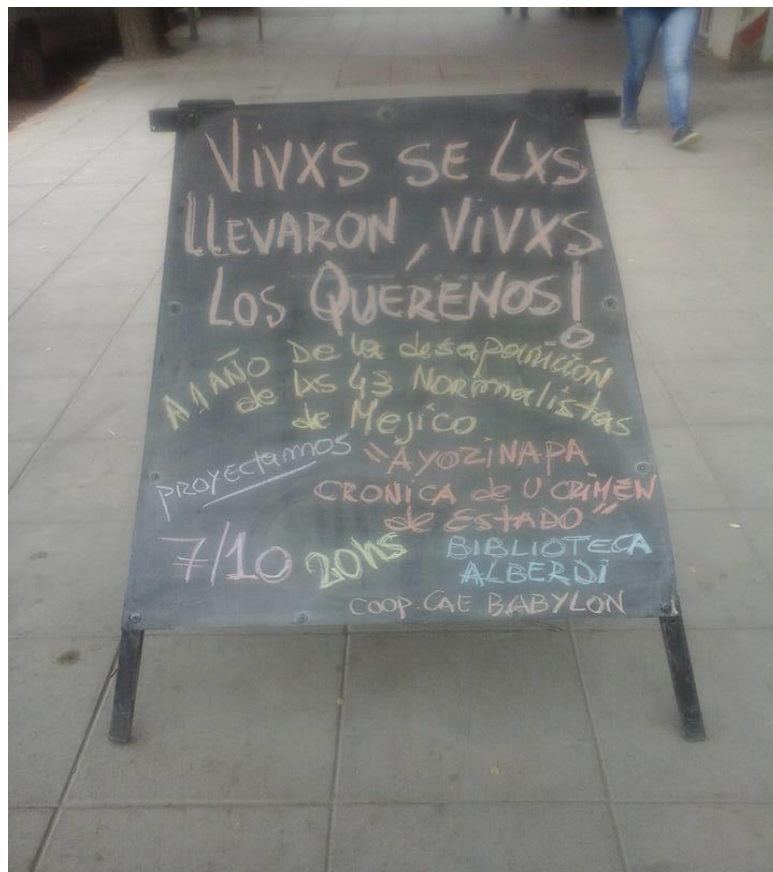 VIVXS SE LXS
LLEVARON, VIVXS
LOS QUEREMOS!
A 1 AÑO De la desaparición
de lxs 43 Normalistas
de Mejico
PROYECTAMOS "AYOZINAPA
CRONICA de U CRIMEN
de ESTADO"
7/10 20hs BIBLIOTECA
ALBERDI
COOP. CAE BABYLON